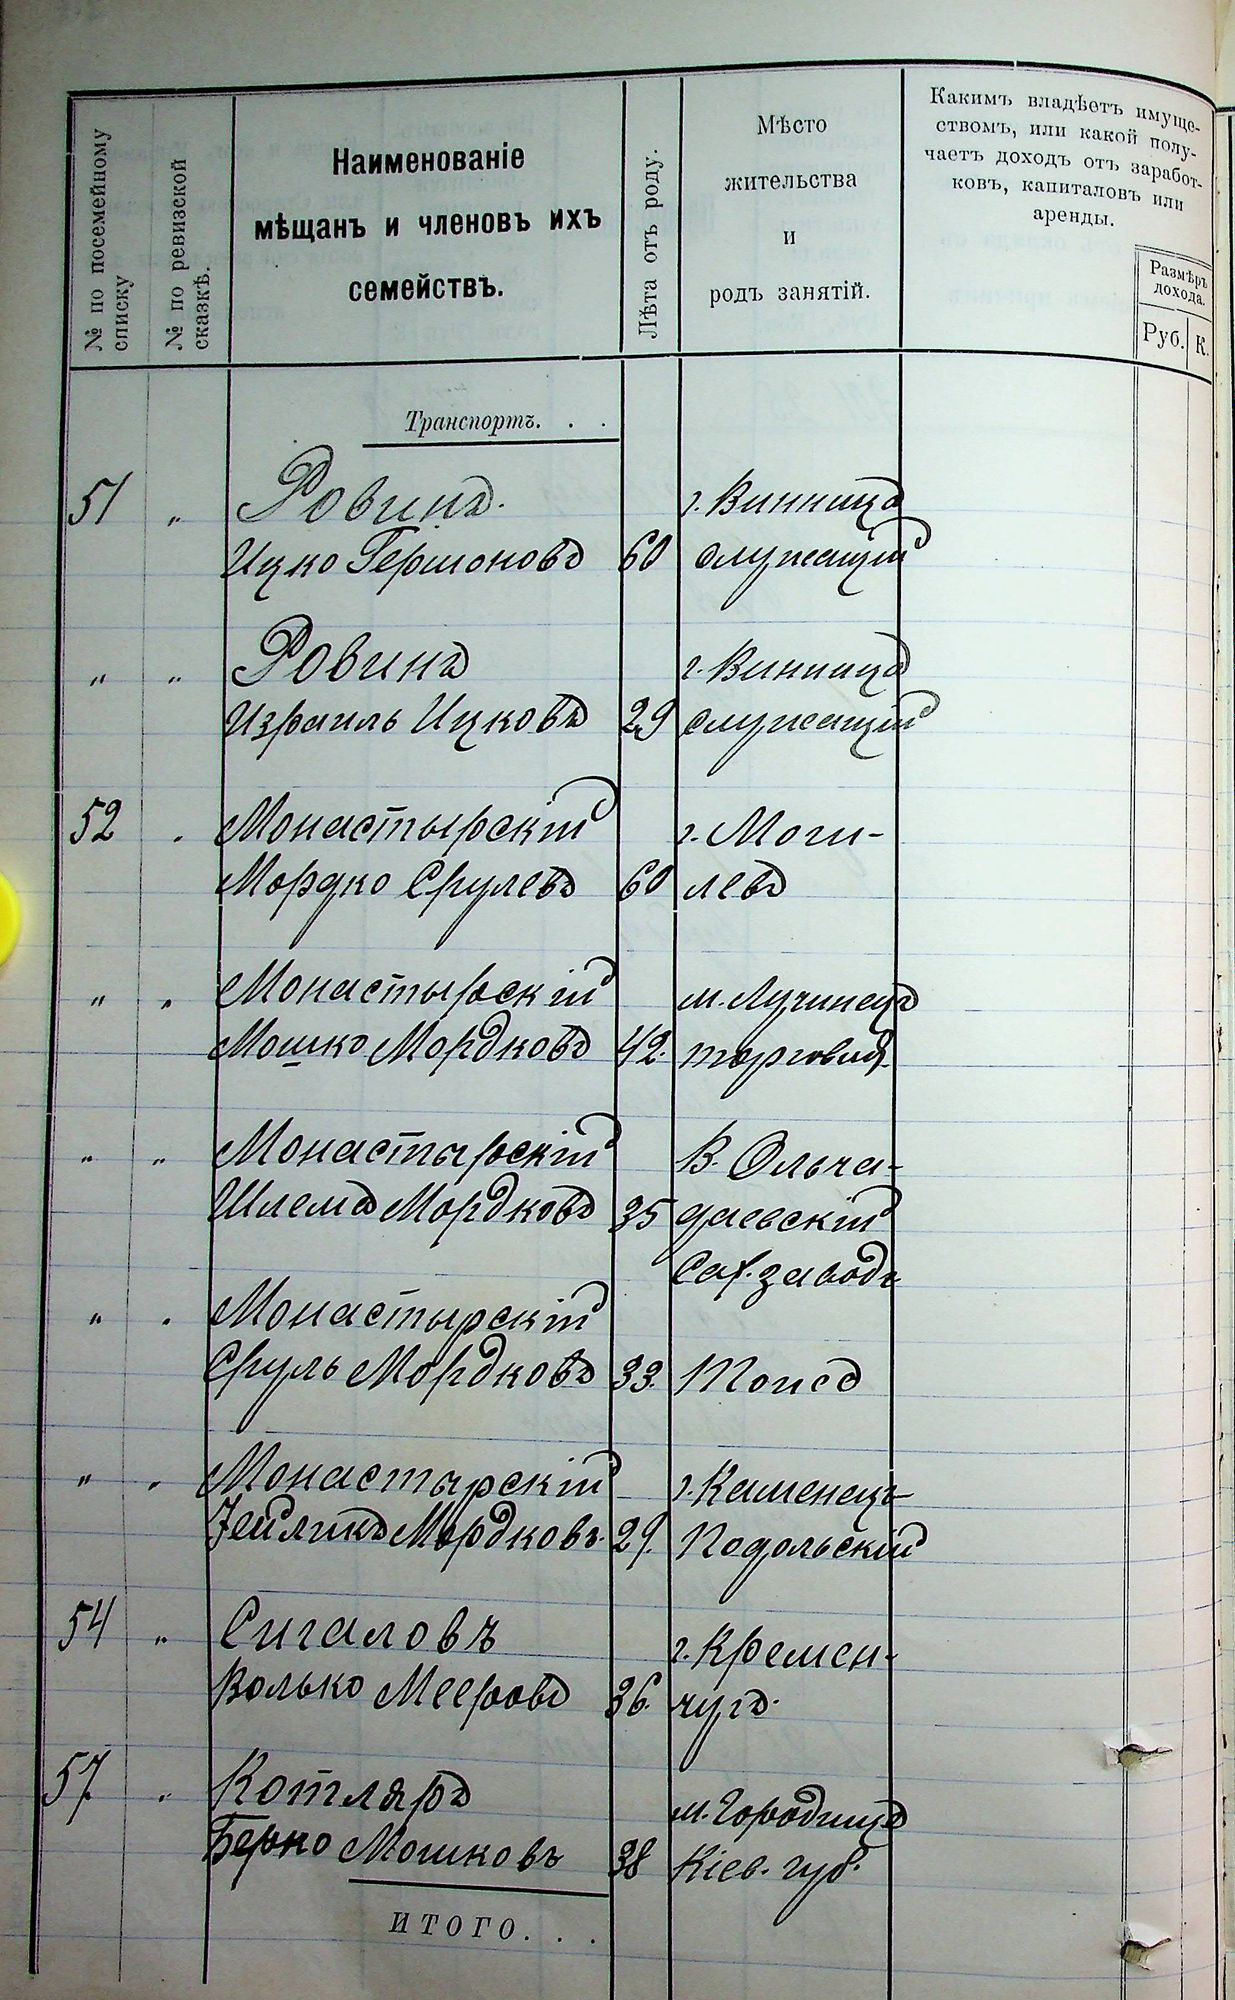 № по посемейному
списку
№ по ревизской
сказкѣ.
Наименованіе
мѣщанъ и членовъ ихъ
семействъ.
Лѣта отъ роду.
Мѣсто
жительства
и
родъ занятій.
Какимъ владѣетъ имуще-
ствомъ, или какой полу-
чаетъ доходъ отъ заработ-
ковъ, капиталовъ или
аренды.
Размѣръ
дохода.
Руб. К.
Транспортъ. . .
51 " Ровинъ. г. Винница
Ицко Гершоновъ 60 служащій
" " Ровинъ г. Винница
Израиль Ицковъ 29 служащій
52 " Монастырскій г. Моги-
Мордко Срулевъ 60 левъ
" " Монастырскій м. Лучинецъ
Мошко Мордковъ 42. торговля.
" " Монастырскій В. Ольча-
Шлема Мордковъ 35 даевскій
Сах. заводъ
" " Монастырскій
Сруль Мордковъ 33. Тоже
" " Монастырскій г. Каменецъ
Зейликъ Мордковъ. 29. Подольскій
54 " Сигаловъ г. Кремен-
Волько Мееровъ 36. чугъ.
57. " Котляръ м. Городище
Берко Мошковъ 38 Кіев. губ.
ИТОГО. . .